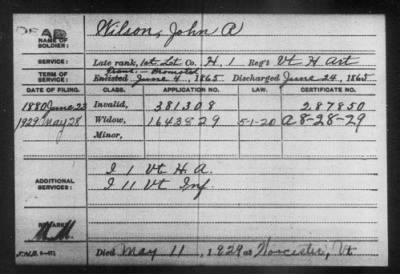 AB
NAME OF SOLDIER: Wilson, John A
SERVICE: Late rank, 1st Lt Co. H, 1 Reg't Vt H Art
TERM OF SERVICE: Enlisted June 4, 1865 Discharged June 24, 1865
DATE OF FILING. CLASS. APPLICATION NO. LAW. CERTIFICATE NO.
1880 June 22 Invalid, 381308 287850
1929 May 28 Widow, 1643829 5-1-20 A 8-28-29
Minor,
ADDITIONAL SERVICES: I 1 Vt H. A.
I 11 Vt Inf
REMARKS:
Died May 11, 1929 at Worcester, Vt